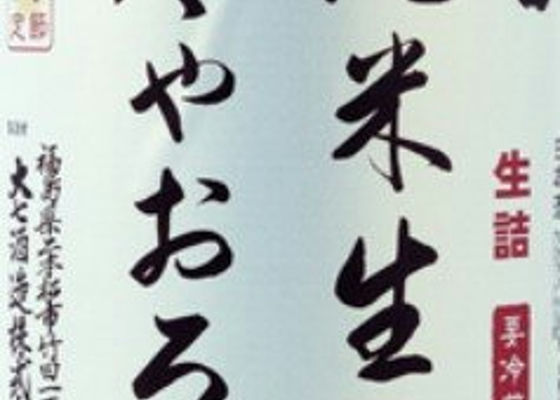 生詰
要冷
米生
やおろ
福島県二本松市竹田一
大七酒造株式